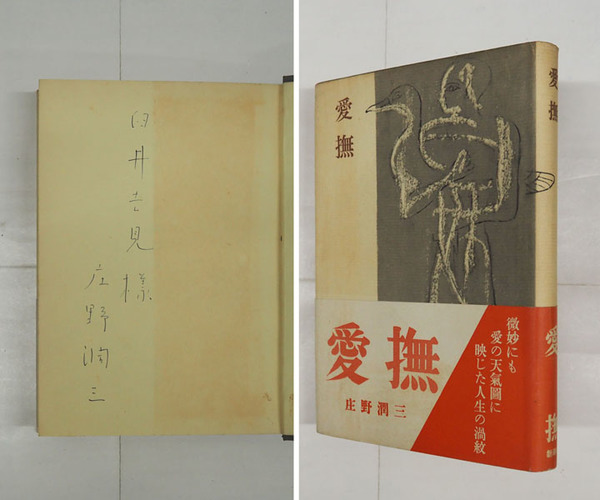 臼井吉見様
庄野潤三
愛撫
愛撫
愛撫
庄野潤三
微妙にも
愛の天氣圖に
映じた人生の渦紋
愛撫